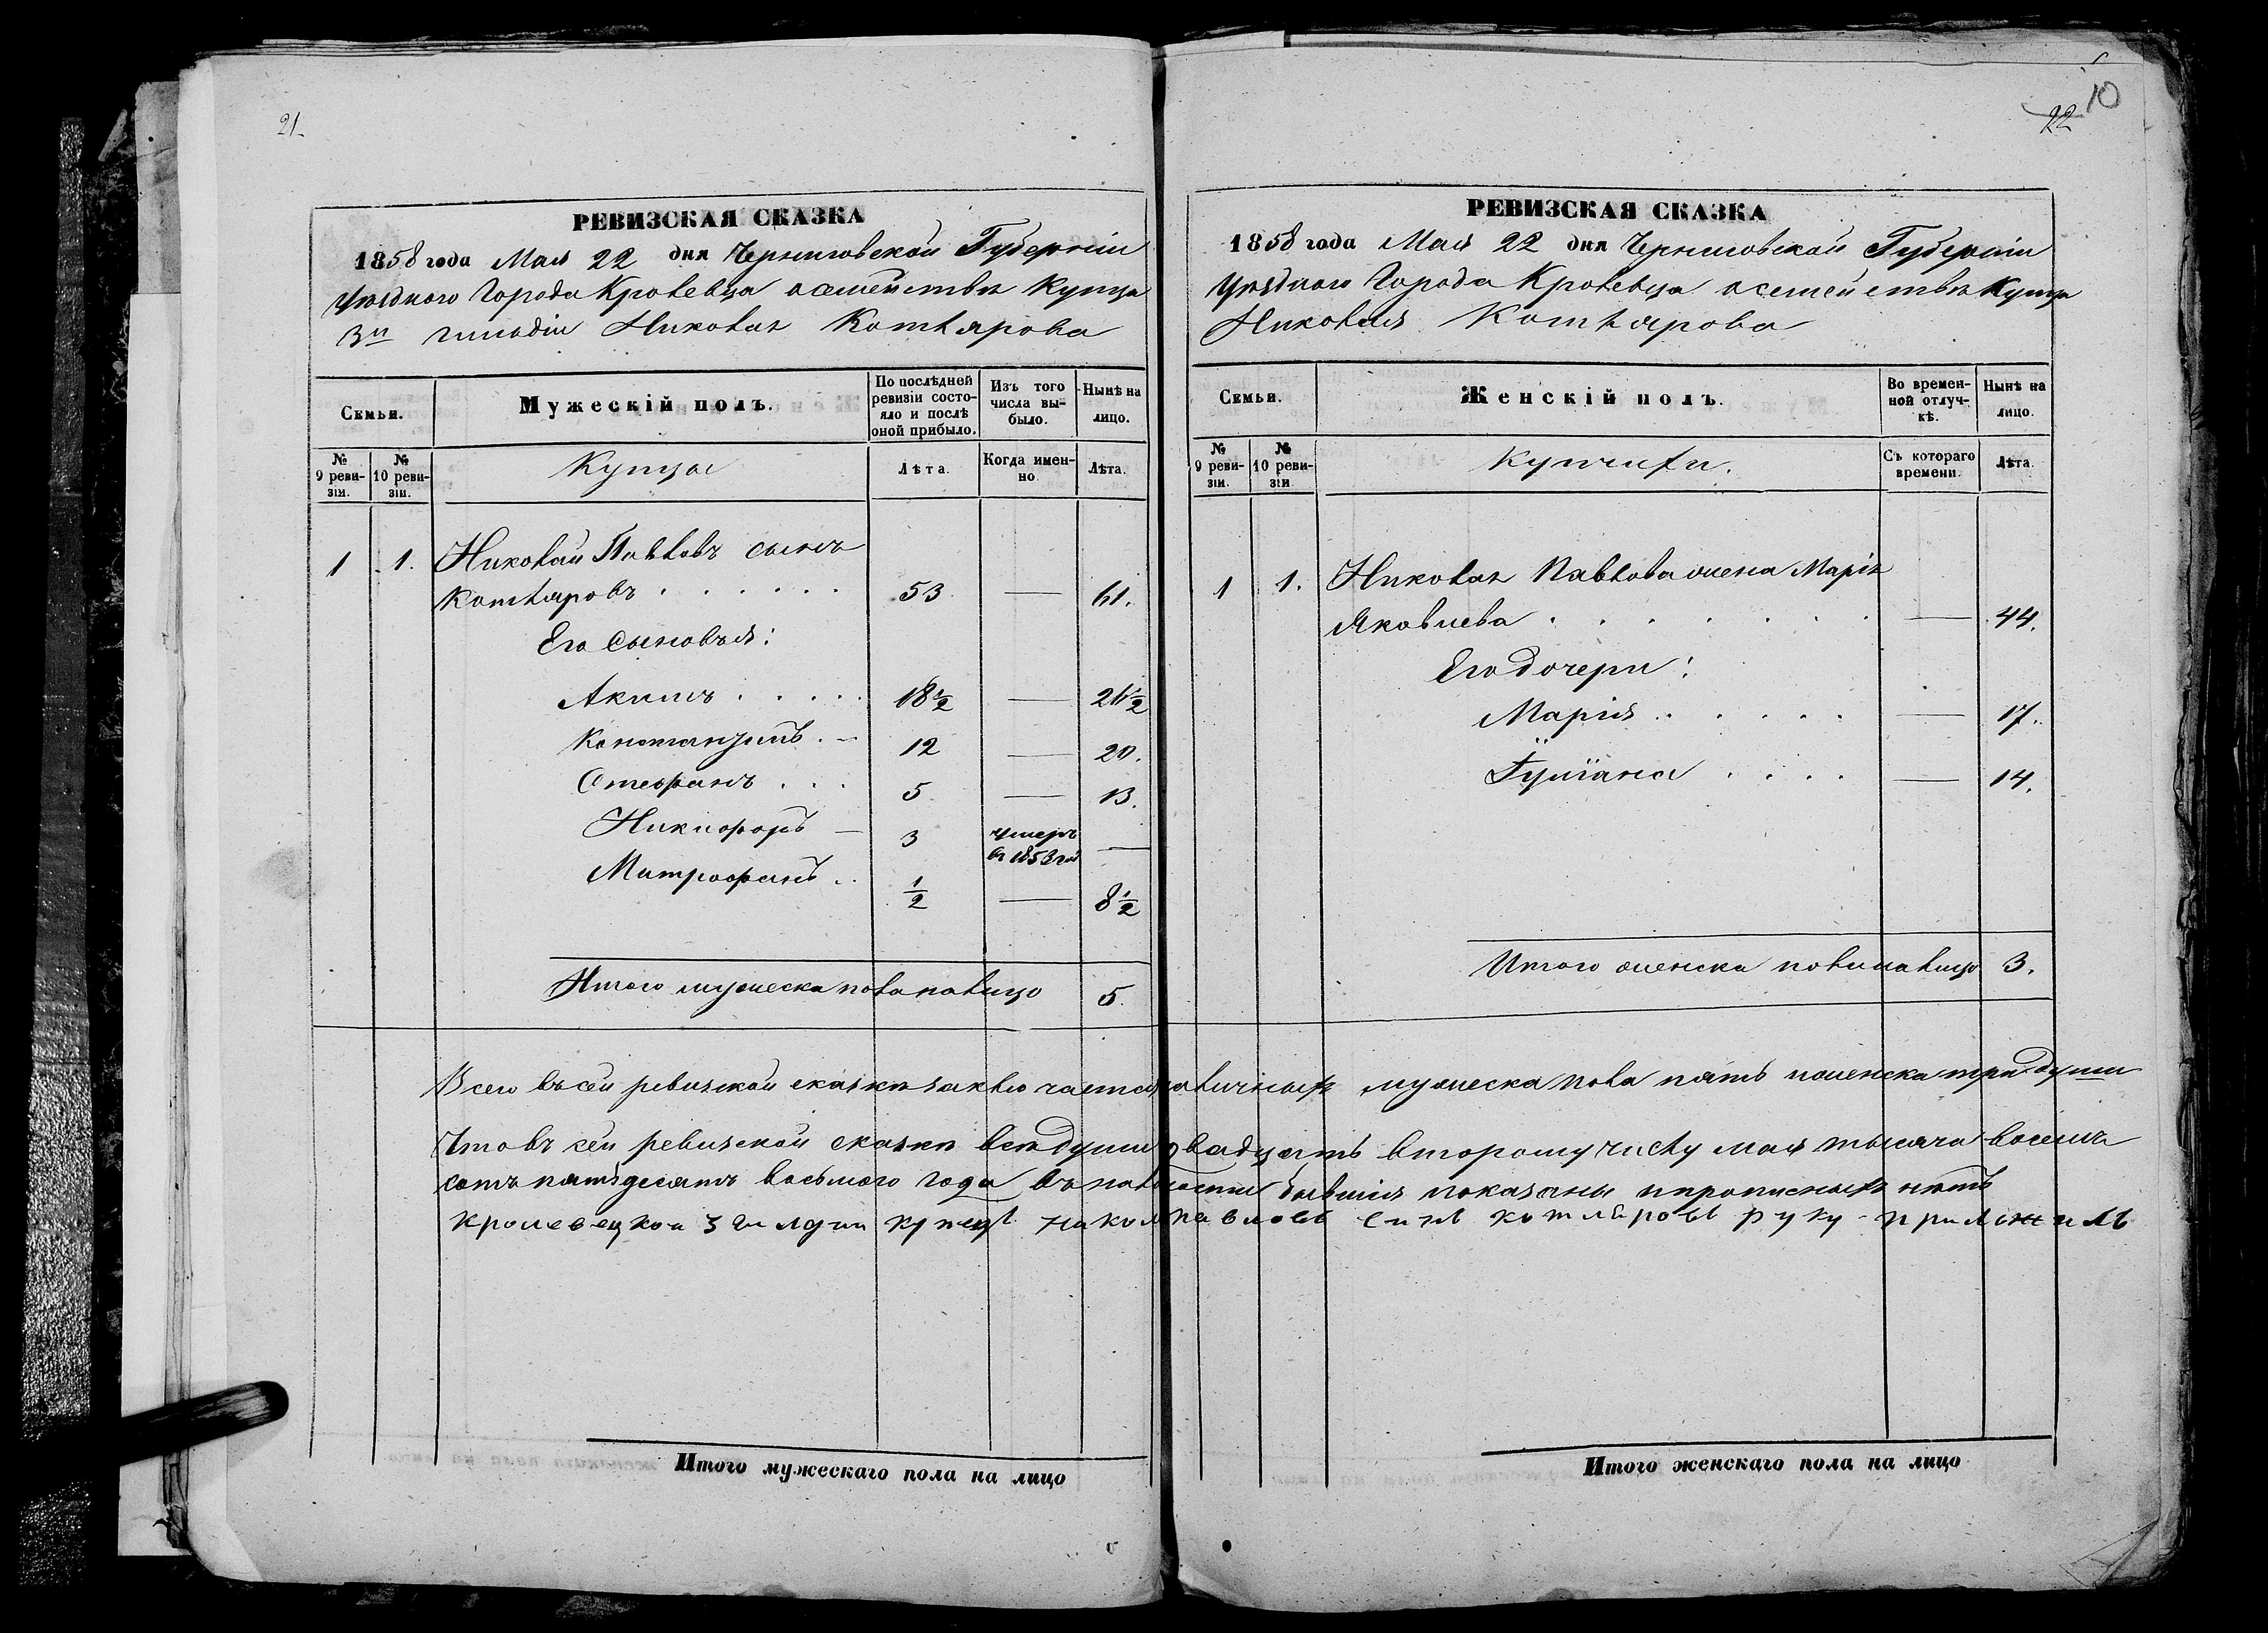 21
РЕВИЗСКАЯ СКАЗКА
1858 года Мая 22 дня Черниговской Губерніи
Уѣзднаго Города Кролевца о семействѣ Купца
3й гильдіи Николая Котлярова
Семьи.
Мужескій полъ.
По послѣдней ревизіи состояло и послѣ оной прибыло.
Изъ того числа выбыло.
Нынѣ на лицо.
№ 9 ревизіи.
№ 10 ревизіи.
Купцы
Лѣта.
Когда именно.
Лѣта.
1 1. Николай Павловъ сынъ
Котляровъ . . . . . . 53 — 61.
Его сыновья:
Акимъ . . . . . 18½ — 26½
Константинъ . – 12 — 20.
Стефанъ . . . 5 — 13.
Никифоръ — 3 умеръ въ 1853 год —
Митрофанъ . . ½ — 8½
Итого мужеска пола налицо 5.
Итого мужескаго пола на лицо
10
22
РЕВИЗСКАЯ СКАЗКА
1858 года Мая 22 дня Черниговской Губерніи
Уѣзднаго Города Кролевца о семействѣ Купца
Николая Котлярова
Семьи.
Женскій полъ.
Во временной отлучкѣ.
Нынѣ на лицо.
№ 9 ревизіи.
№ 10 ревизіи
Купчихи.
Съ котораго времени.
Лѣта.
1 1. Николая Павлова жена Марія
Яковлева . . . . . . . — 44.
Его дочери:
Марія . . . . . — 17.
. . . . — 14.
Итого женска пола налицо 3.
Всего въ сей ревизской сказкѣ заключается наличныхъ мужеска пола пять и женска три души
Что въ сей ревизской сказкѣ всѣ души двадцать второму числу мая тысяча восемь
сотъ пятьдесятъ восьмого года въ наличности бывшія показаны и прописныхъ нѣтъ
кролевецкои 3 гилдии купецъ николай павловъ синъ котляровъ руку приложилъ
Итого женскаго пола на лицо